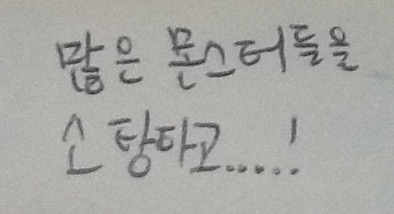 많은 몬스터들을
소탕타고.....!